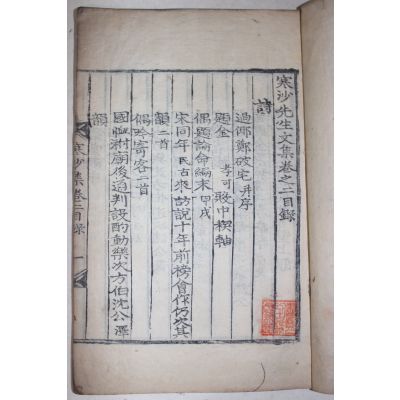 寒沙先生文集卷之二目錄
詩
過鄭破宅幷序
題金孝可敗中楔軸
偶題論命編末甲戌
宋同年民古來訪說十年前榜會作仍次其
韻二首
偶吟寄客二首
國哀祔廟後通判設酌動樂次方伯沈公澤
韻
寒沙集卷二目錄
一